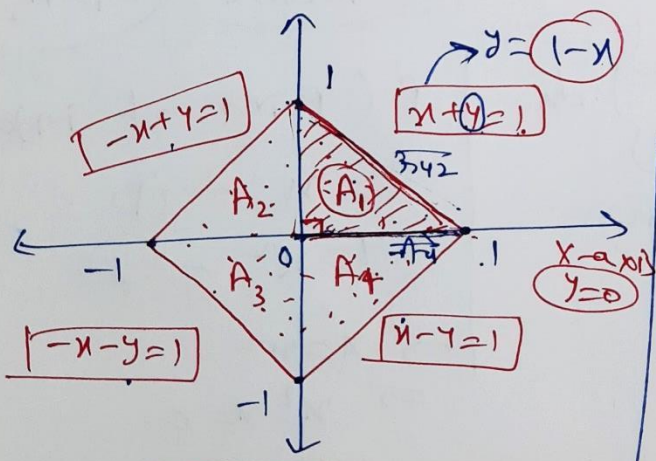 y = 1-x
1
-x+y=1
x+y=1
A2
A1
-1
0
1
x-axis
y=0
A3
A4
-x-y=1
x-y=1
-1